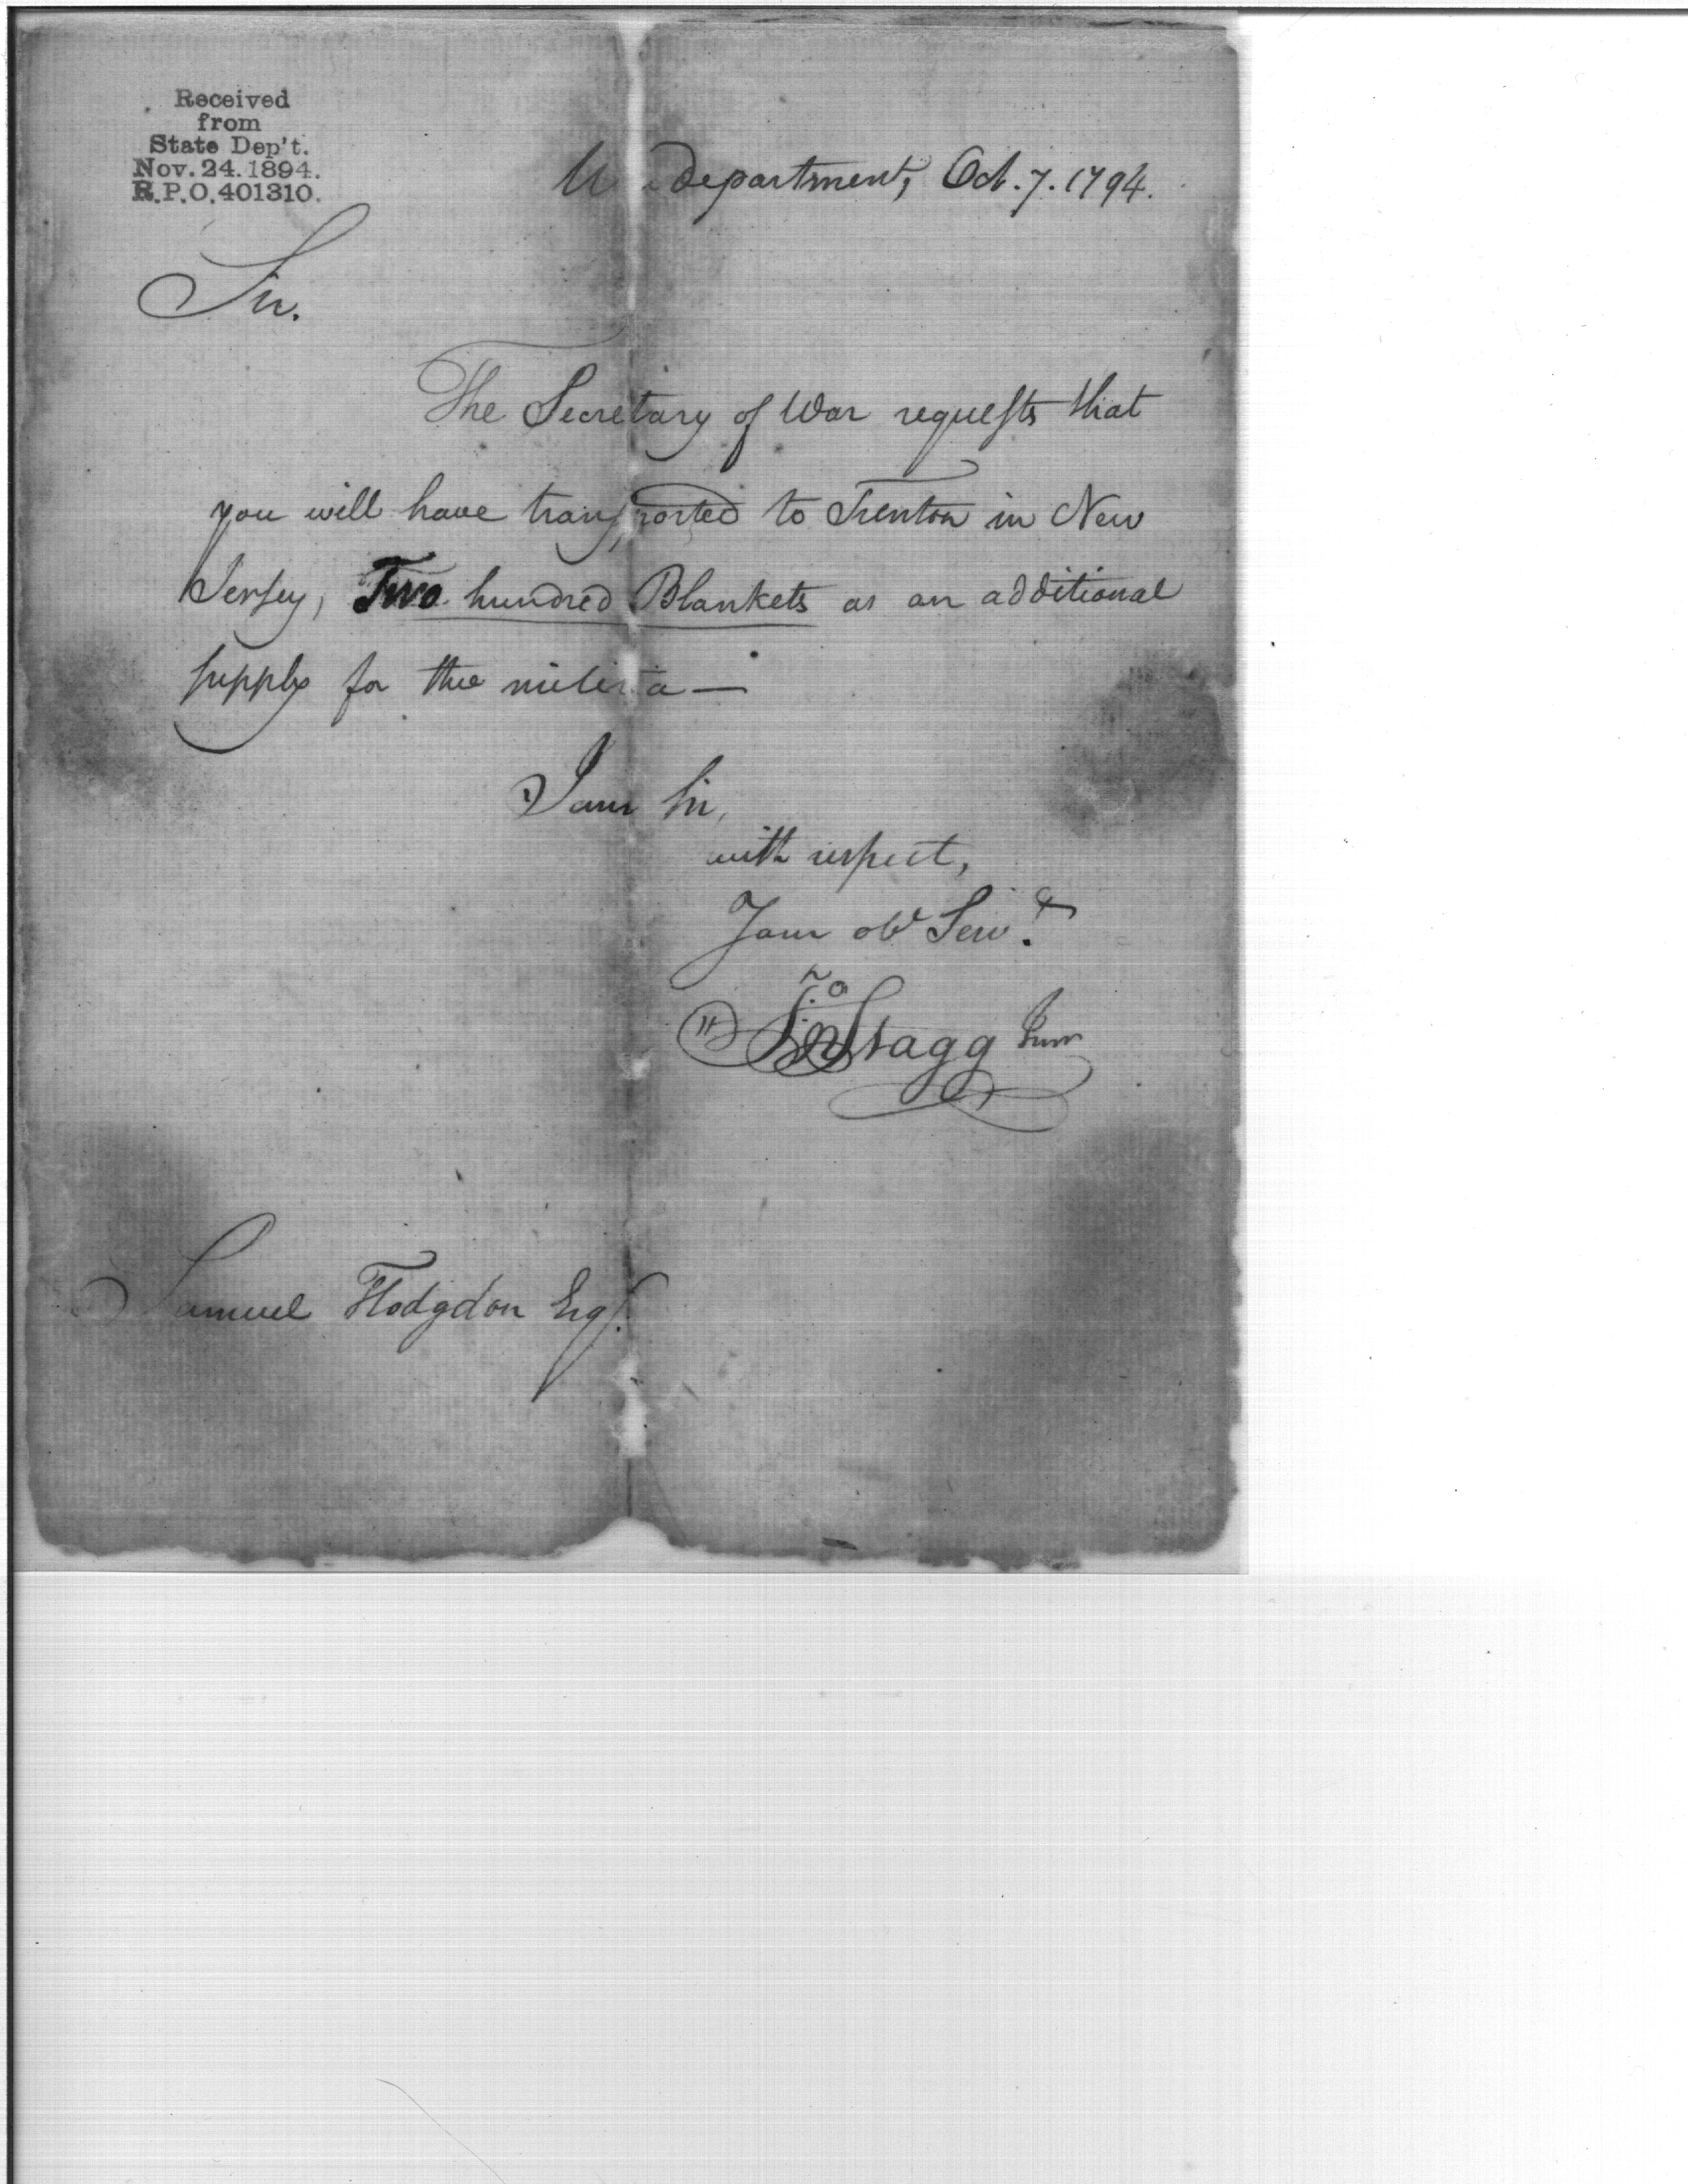 Received
from
State Dep't.
Nov. 24. 1894.
R.P.O. 401310.
W department, Oct. 7. 1794.
Sir.
The Secretary of War requests that
you will have transported to Trenton in New
Jersey, Two hundred Blankets as an additional
supply for the militia —
I am Sir,
with respect,
Your obt Servt.
Jno Stagg Junr
Samuel Hodgdon Esqr.